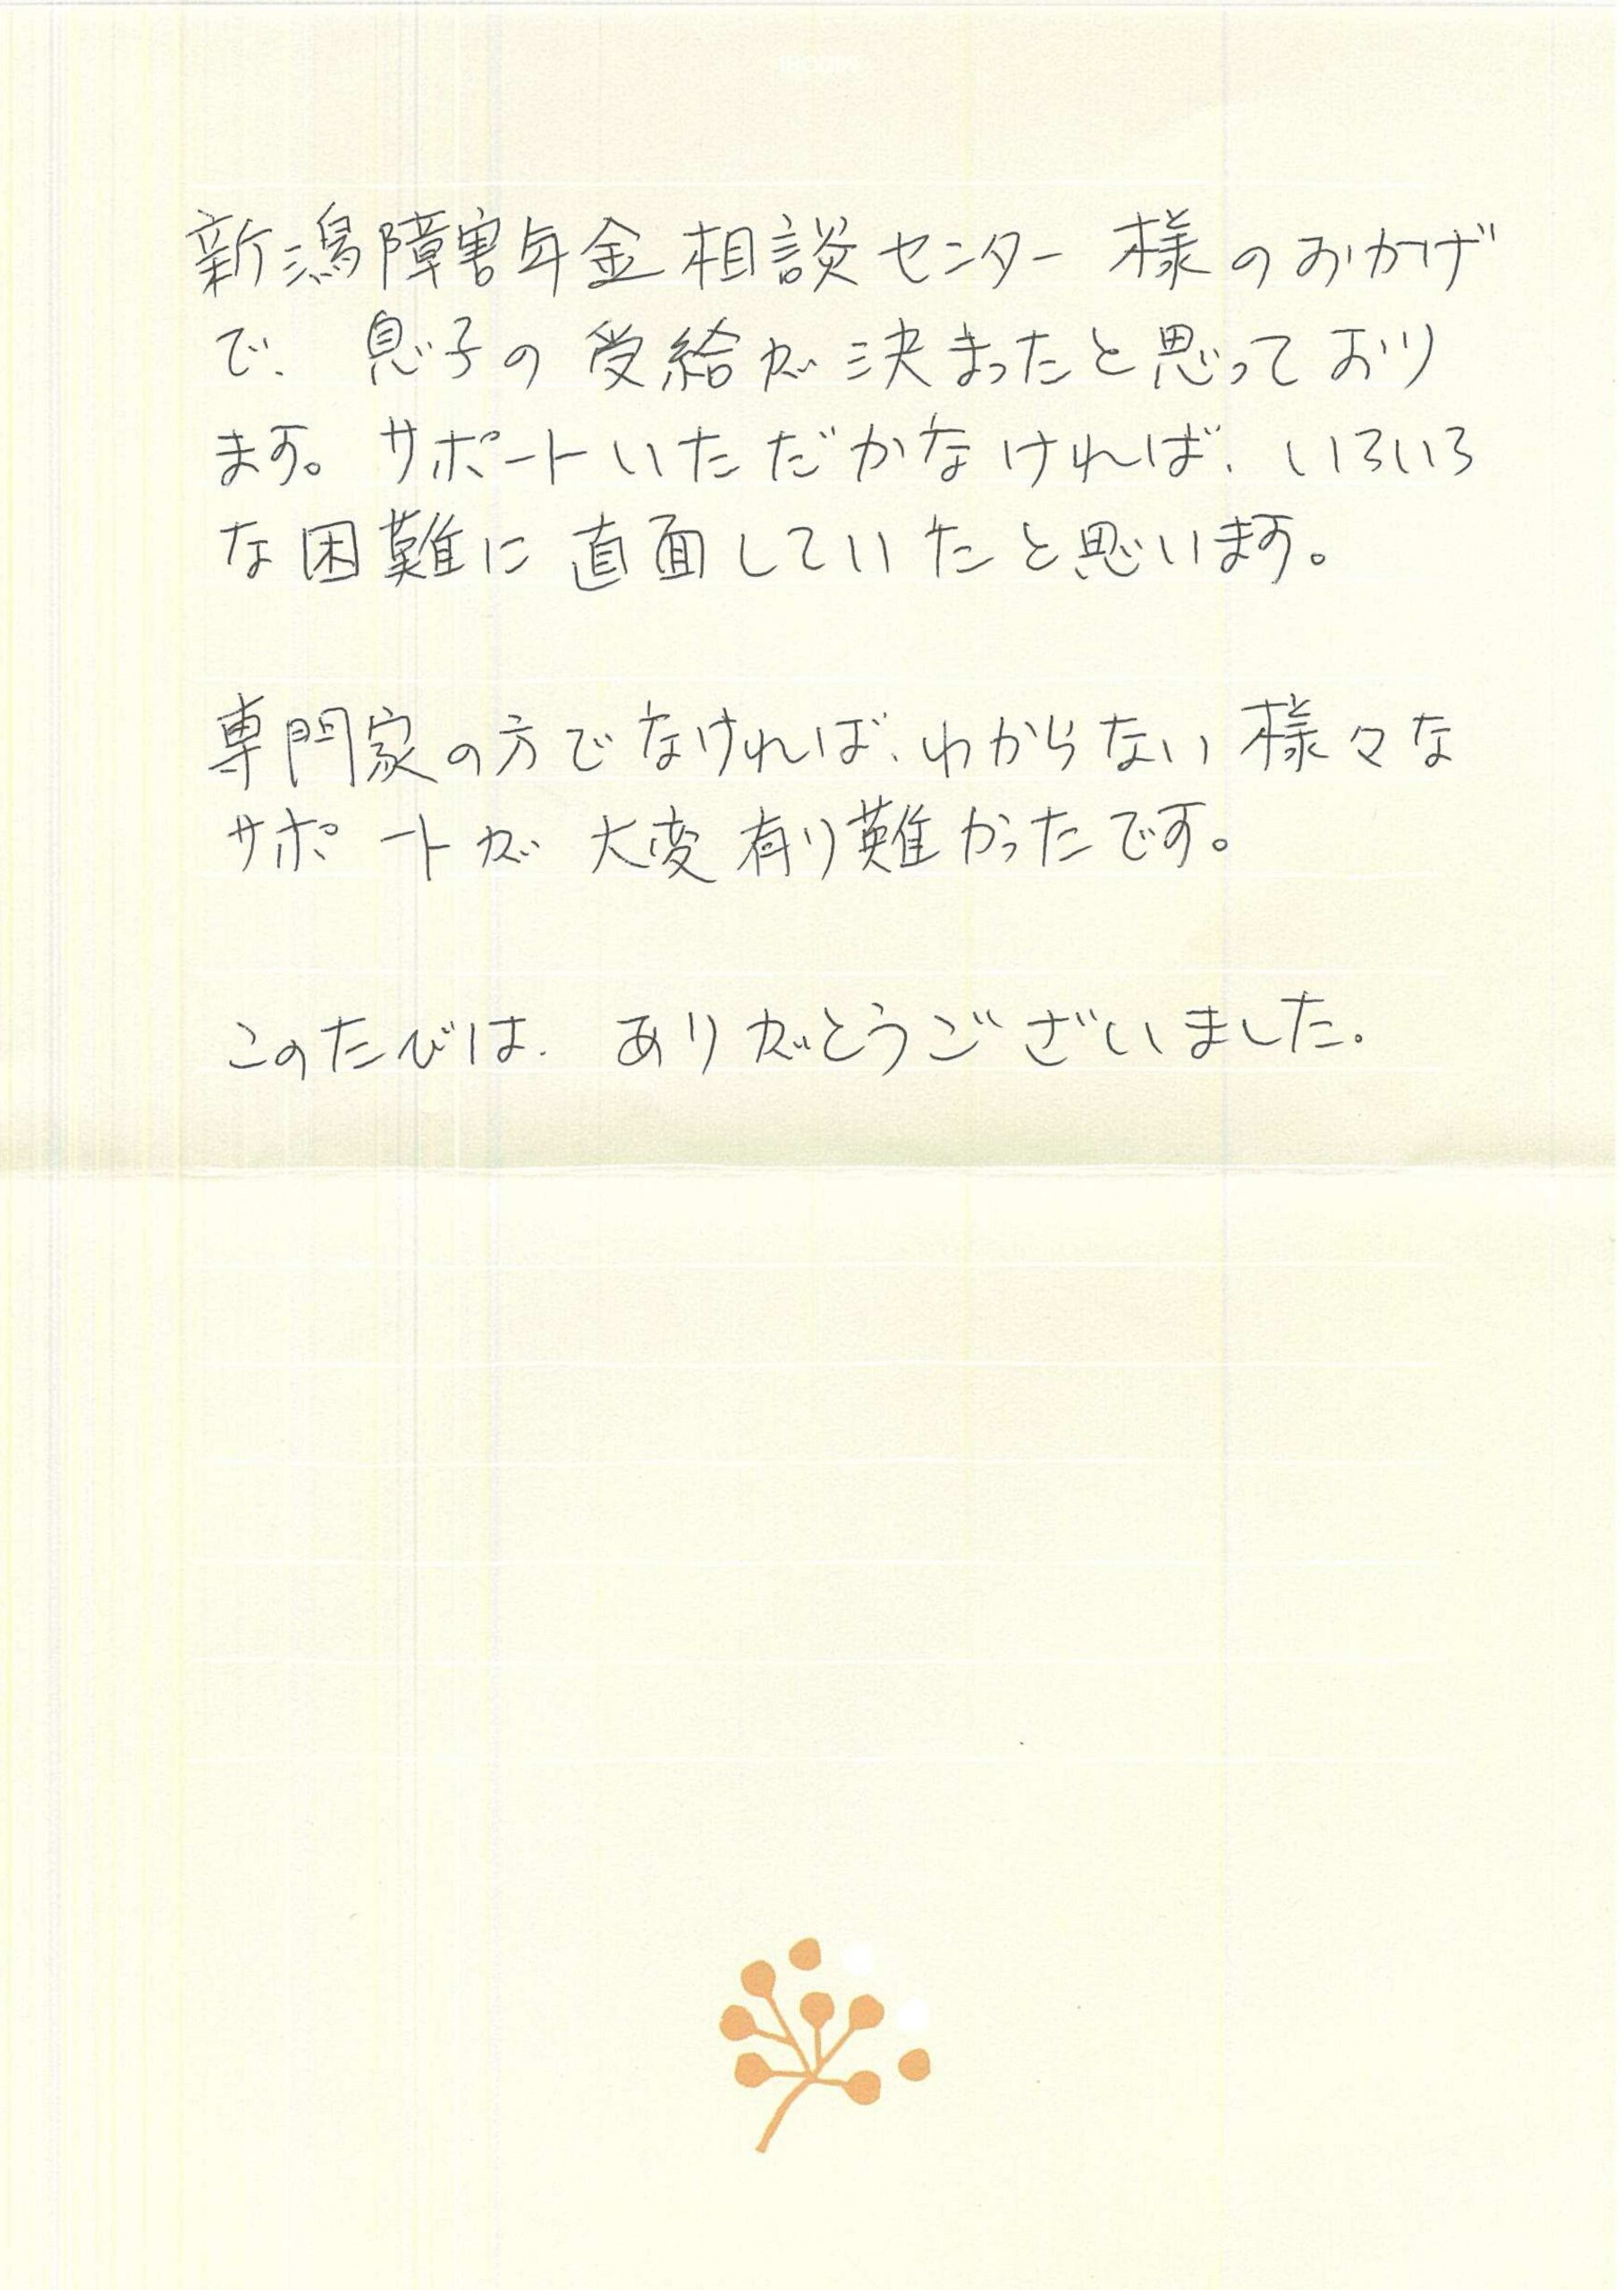 新潟障害年金相談センター様のおかげ
で、息子の受給が決まったと思っており
ます。サポートいただかなければ、いろいろ
な困難に直面していたと思います。
専門家の方でなければ、わからない様々な
サポートが大変有り難かったです。
このたびは、ありがとうございました。